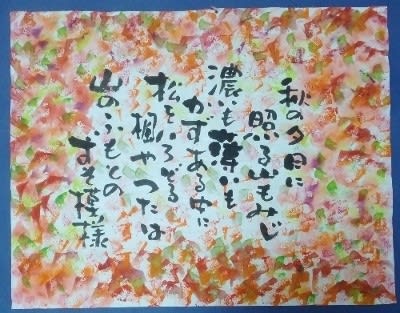 秋の夕日に
照る山もみじ
濃いも薄いも
かずある中に
松をいろどる
楓やつたは
山のふもとの
すそ模様